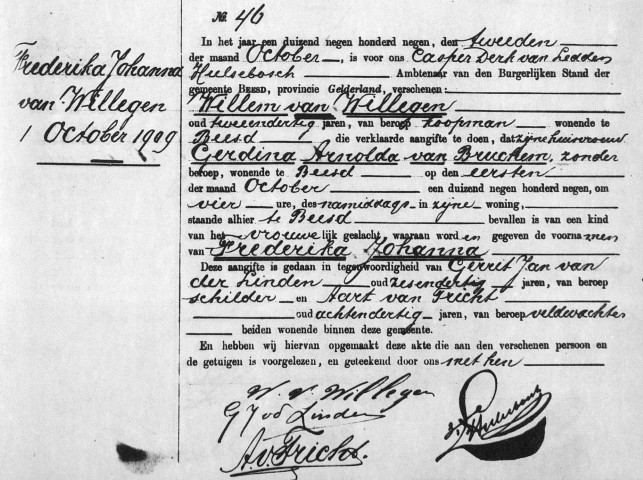 № 46
Frederika Johanna
van Willegen
1 October 1909
In het jaar een duizend negen honderd negen, den tweeden
der maand October, is voor ons Casper Derk van Ledden
Hulsebosch Ambtenaar van den Burgerlijken Stand der
gemeente BEESD, provincie Gelderland, verschenen:
Willem van Willegen
oud tweendertig jaren, van beroep koopman wonende te
Beesd die verklaarde aangifte te doen, dat zijne huisvrouw
Gerdina Arnolda van Bruchem, zonder
beroep, wonende te Beesd op den eersten
der maand October een duizend negen honderd negen, om
vier ure, des namiddags in zijne woning,
staande alhier te Beesd bevallen is van een kind
van het vrouwelijk geslacht, waaraan worden gegeven de voornamen
van Frederika Johanna
Deze aangifte is gedaan in tegenwoordigheid van Gerrit Jan van
der Linden oud zesendertig jaren, van beroep
schilder en Aart van Tricht
oud achtendertig jaren, van beroep veldwachter
beiden wonende binnen deze gemeente.
En hebben wij hiervan opgemaakt deze akte die aan den verschenen persoon en
de getuigen is voorgelezen, en geteekend door ons met hen
W. v. Willegen
G J vd Linden
A. v. Tricht.